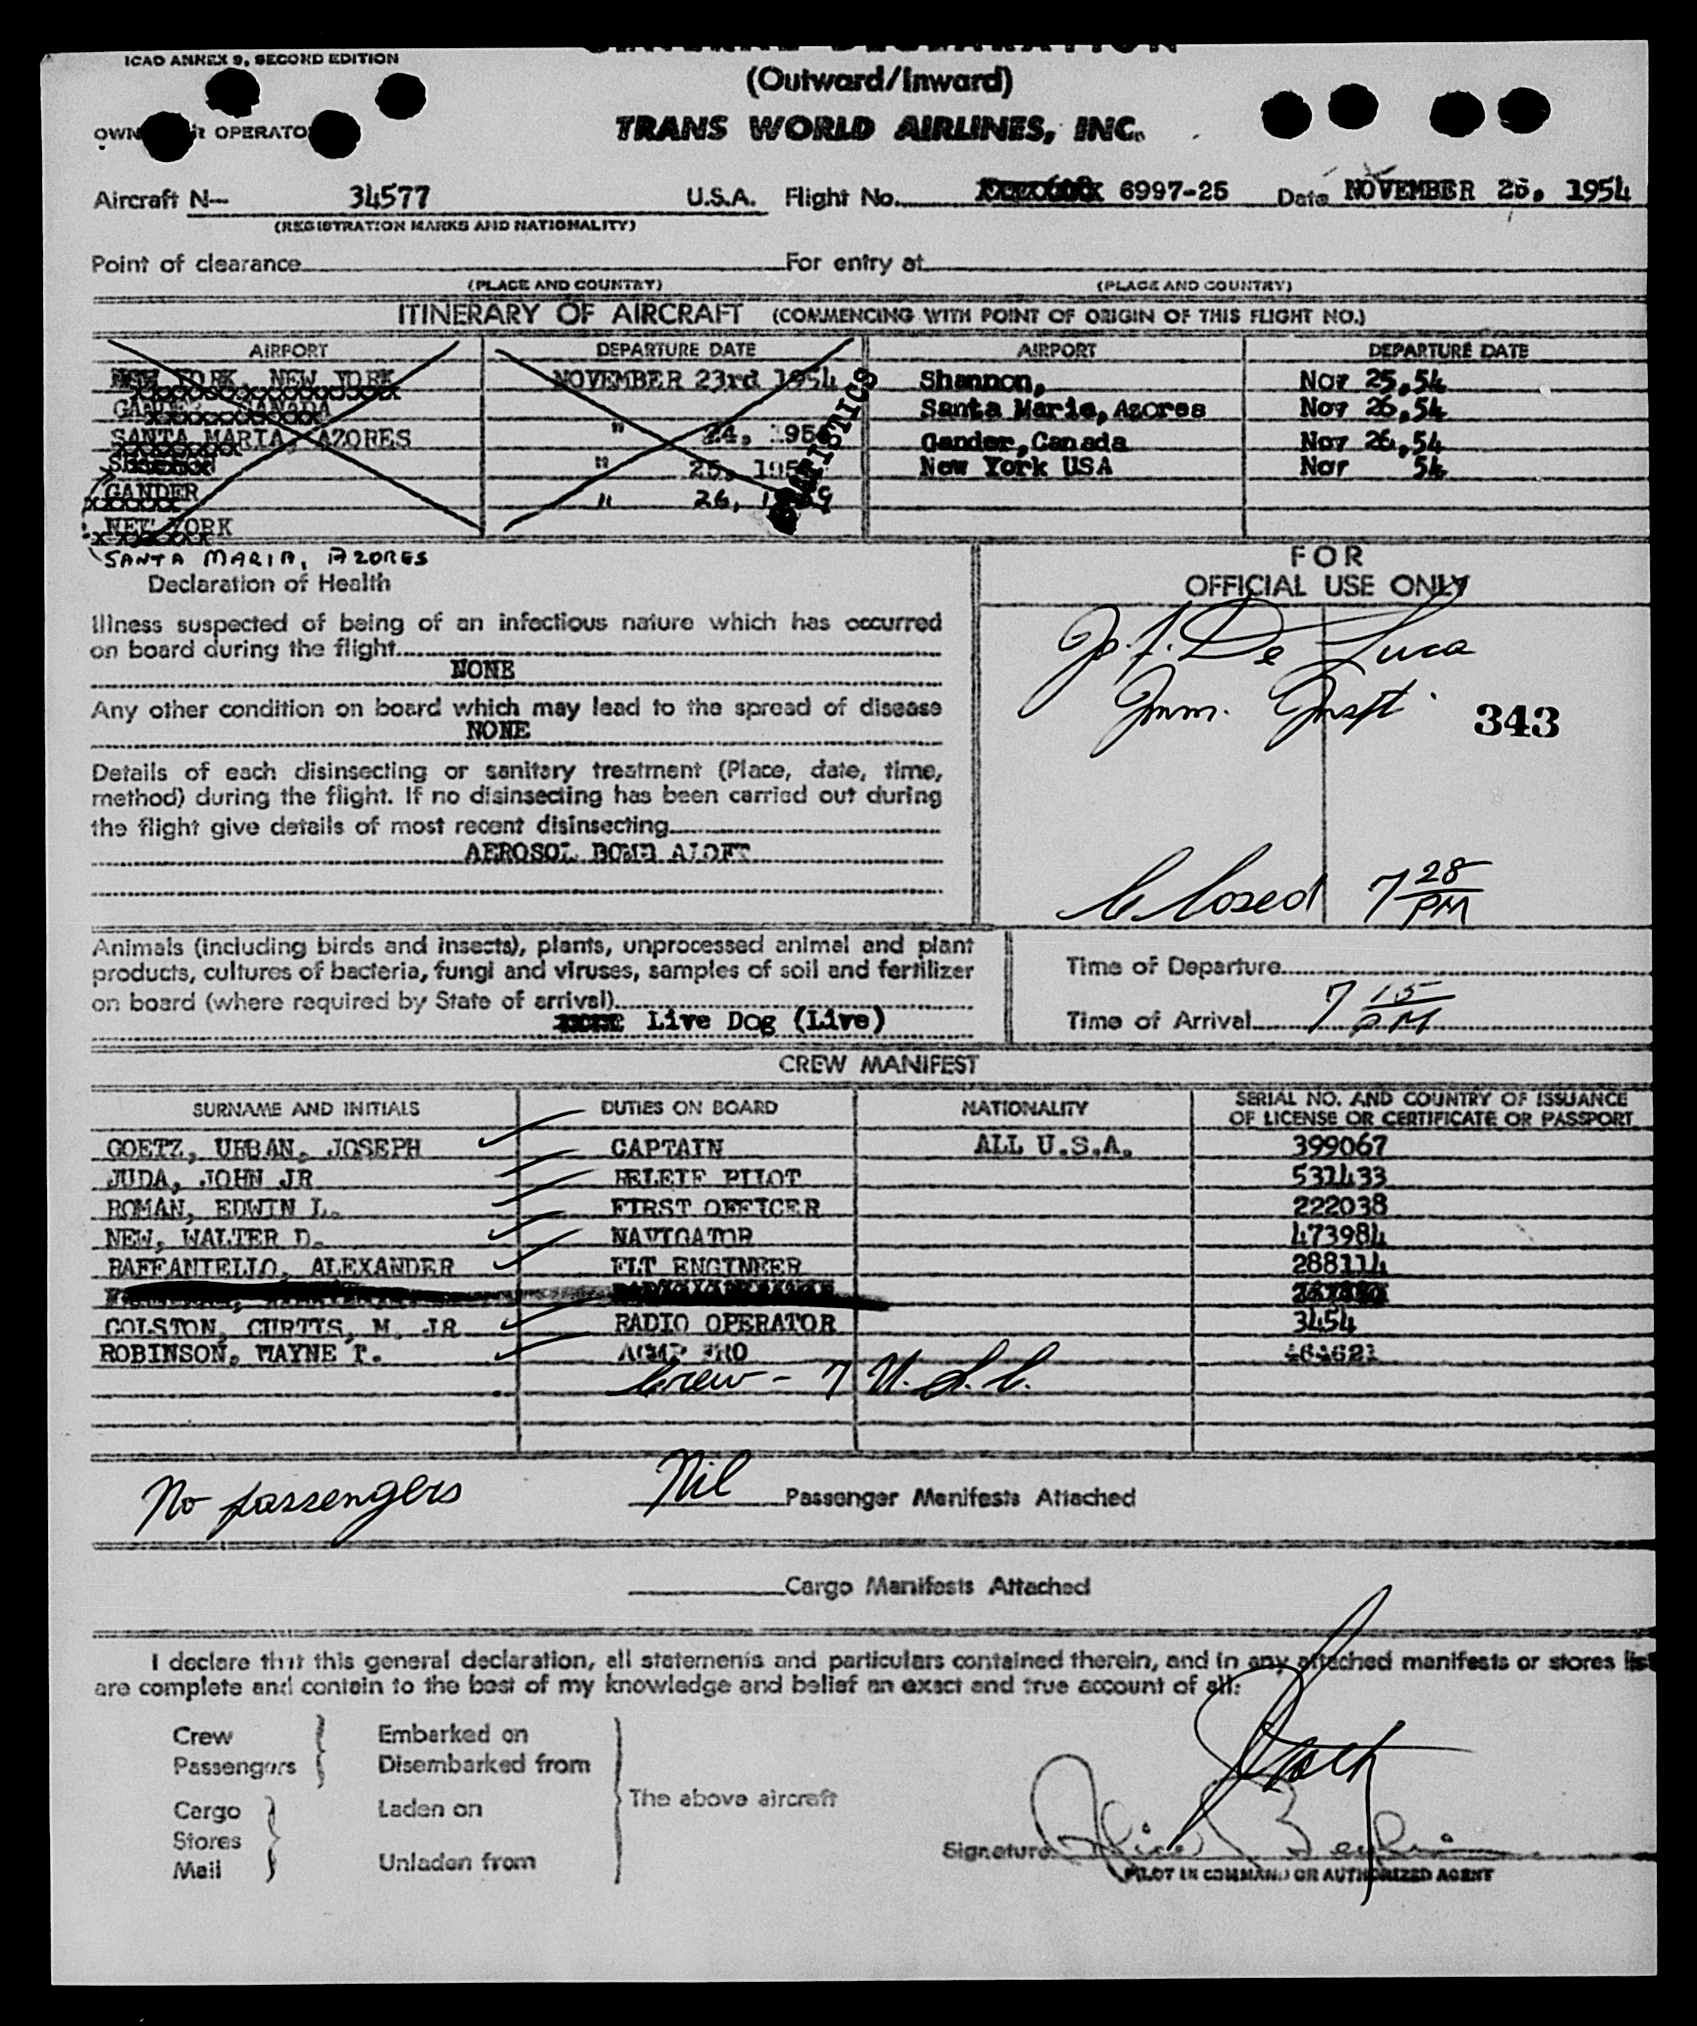 ICAO ANNEX 9, SECOND EDITION
(Outward/Inward)
OPERATO
TRANS WORLD AIRLINES, INC.
Aircraft N-- 34577 U.S.A. Flight No. 6997-25 Date NOVEMBER 25, 1954
(REGISTRATION MARKS AND NATIONALITY)
Point of clearance For entry at
(PLACE AND COUNTRY) (PLACE AND COUNTRY)
ITINERARY OF AIRCRAFT (COMMENCING WITH POINT OF ORIGIN OF THIS FLIGHT NO.)
AIRPORT DEPARTURE DATE AIRPORT DEPARTURE DATE
NEW YORK, NEW YORK NOVEMBER 23rd 1954 Shannon, Nov 25,54
GANDER, CANADA Santa Maria, Azores Nov 26,54
SANTA MARIA, AZORES " 24, 195 Gander, Canada Nov 26,54
" 25, 195 New York USA Nov 54
GANDER " 26, 1
NEW YORK
STATISTICS
SANTA MARIA, AZORES
FOR
OFFICIAL USE ONLY
Declaration of Health
Illness suspected of being of an infectious nature which has occurred
on board during the flight
NONE
De Luca
Imm. Inspt.
343
Any other condition on board which may lead to the spread of disease
NONE
Details of each disinsecting or sanitary treatment (Place, date, time,
method) during the flight. If no disinsecting has been carried out during
the flight give details of most recent disinsecting
AEROSOL BOMB ALOFT
Closed 7 28 PM
Animals (including birds and insects), plants, unprocessed animal and plant
products, cultures of bacteria, fungi and viruses, samples of soil and fertilizer
on board (where required by State of arrival)
Live Dog (Live)
Time of Departure
Time of Arrival 7 15 PM
CREW MANIFEST
SURNAME AND INITIALS DUTIES ON BOARD NATIONALITY SERIAL NO. AND COUNTRY OF ISSUANCE
OF LICENSE OR CERTIFICATE OR PASSPORT
GOETZ, URBAN, JOSEPH CAPTAIN ALL U.S.A. 399067
JUDA, JOHN JR RELEIF PILOT 531433
ROMAN, EDWIN L. FIRST OFFICER 222038
NEW, WALTER D. NAVIGATOR 473984
RAFFANIELLO, ALEXANDER FLT ENGINEER 288114
COLSTON, CURTIS, M. JR RADIO OPERATOR 3454
ROBINSON, WAYNE T. 464621
Crew - 7 U.S.C.
No passengers Nil Passenger Manifests Attached
Cargo Manifests Attached
I declare that this general declaration, all statements and particulars contained therein, and in any attached manifests or stores lis
are complete and contain to the best of my knowledge and belief an exact and true account of all:
Crew Embarked on
Passengers Disembarked from
The above aircraft
Cargo Laden on
Stores
Mail Unladen from
Signature
PILOT IN COMMAND OR AUTHORIZED AGENT